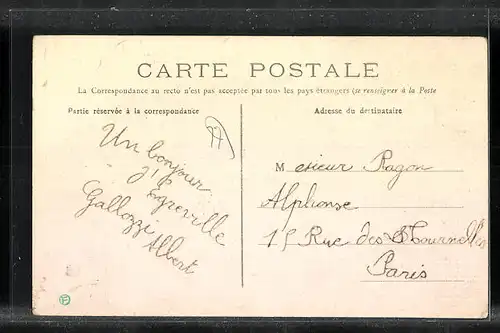 CARTE POSTALE
La Correspondance au recto n'est pas acceptée par tous les pays étrangers (se renseigner à la Poste
Partie réservée à la correspondance
Adresse du destinataire
Un bonjour
d'Egreville
Gallozzi Albert
M esieur Ragon
Alphonse
15 Rue des Tournelles
Paris